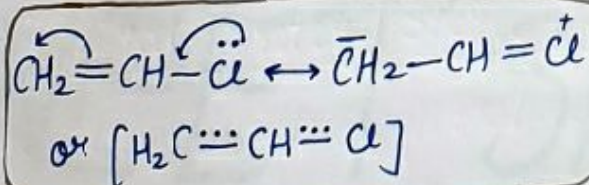 CH₂=CH–C̈l ↔ C̄H₂–CH=C⁺l
or [H₂C⋯CH⋯Cl]